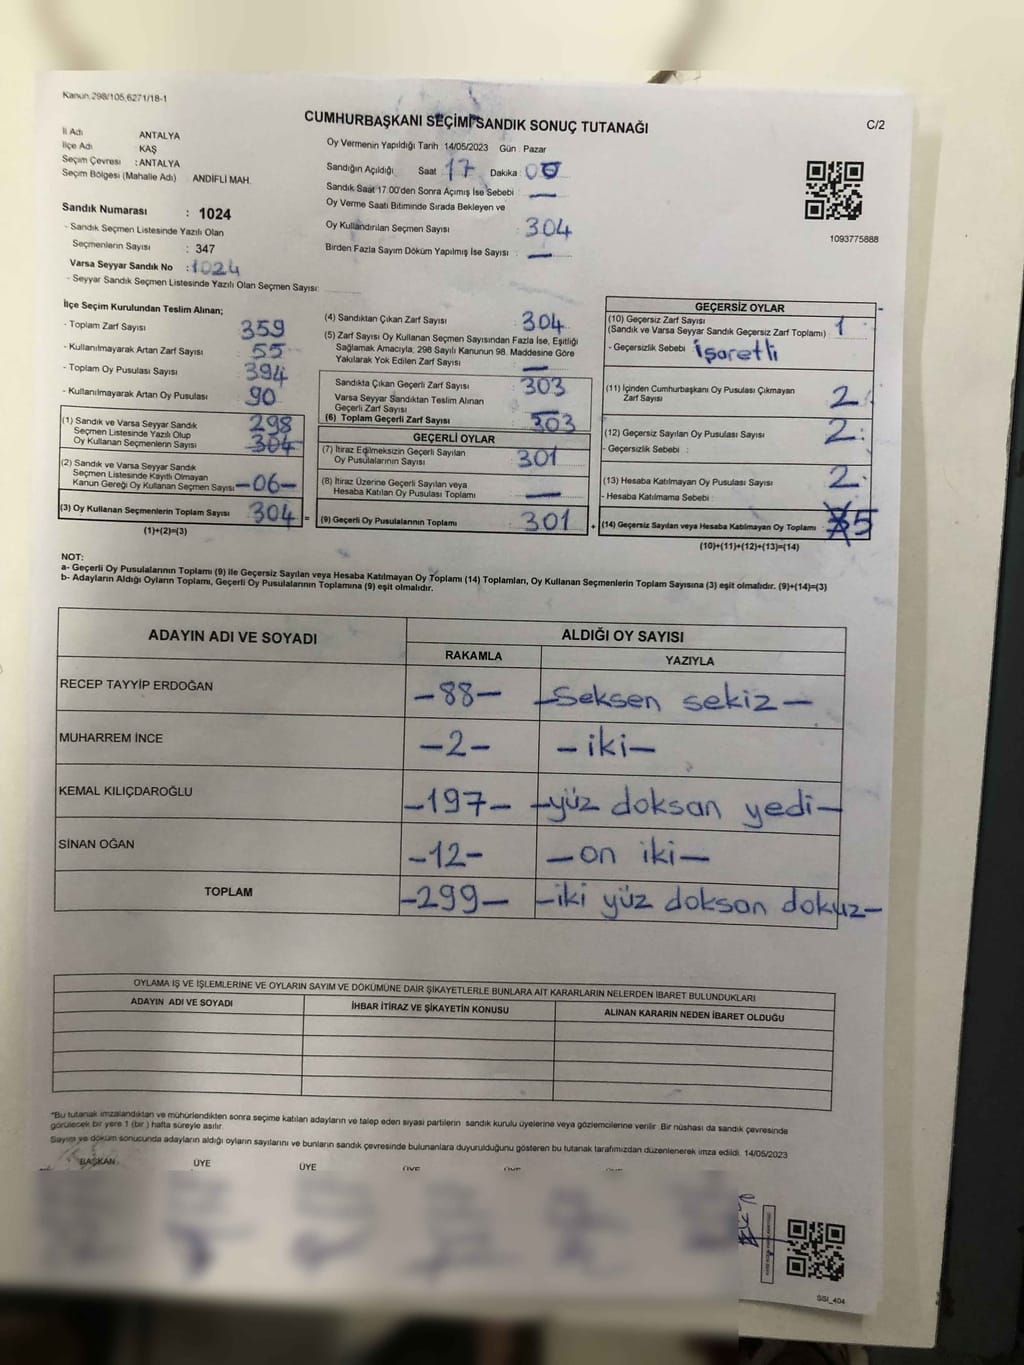 Kanun.298/105,6271/18-1
CUMHURBAŞKANI SEÇİMİ SANDIK SONUÇ TUTANAĞI
C/2
İl Adı ANTALYA
İlçe Adı KAŞ
Seçim Çevresi : ANTALYA
Seçim Bölgesi (Mahalle Adı) ANDİFLİ MAH.
Oy Vermenin Yapıldığı Tarih 14/05/2023 Gün : Pazar
Sandığın Açıldığı Saat 17 Dakika 00
Sandık Saat 17:00'den Sonra Açımış İse Sebebi : —
Oy Verme Saati Bitiminde Sırada Bekleyen ve
Oy Kullandırılan Seçmen Sayısı : 304
Birden Fazla Sayım Döküm Yapılmış İse Sayısı : —
1093775888
Sandık Numarası : 1024
- Sandık Seçmen Listesinde Yazılı Olan
Seçmenlerin Sayısı : 347
Varsa Seyyar Sandık No : 1024
- Seyyar Sandık Seçmen Listesinde Yazılı Olan Seçmen Sayısı:
İlçe Seçim Kurulundan Teslim Alınan;
- Toplam Zarf Sayısı 359
- Kullanılmayarak Artan Zarf Sayısı : 55
- Toplam Oy Pusulası Sayısı 394
- Kullanılmayarak Artan Oy Pusulası : 90
(1) Sandık ve Varsa Seyyar Sandık
Seçmen Listesinde Yazılı Olup
Oy Kullanan Seçmenlerin Sayısı 298 304
(2) Sandık ve Varsa Seyyar Sandık
Seçmen Listesinde Kayıtlı Olmayan
Kanun Gereği Oy Kullanan Seçmen Sayısı —06—
(3) Oy Kullanan Seçmenlerin Toplam Sayısı 304
(1)+(2)=(3)
(4) Sandıktan Çıkan Zarf Sayısı : 304
(5) Zarf Sayısı Oy Kullanan Seçmen Sayısından Fazla İse, Eşitliği
Sağlamak Amacıyla; 298 Sayılı Kanunun 98. Maddesine Göre
Yakılarak Yok Edilen Zarf Sayısı : —
Sandıkta Çıkan Geçerli Zarf Sayısı : 303
Varsa Seyyar Sandıktan Teslim Alınan
Geçerli Zarf Sayısı
(6) Toplam Geçerli Zarf Sayısı : 303
GEÇERLİ OYLAR
(7) İtiraz Edilmeksizin Geçerli Sayılan
Oy Pusulalarının Sayısı : 301
(8) İtiraz Üzerine Geçerli Sayılan veya
Hesaba Katılan Oy Pusulası Toplamı : —
= (9) Geçerli Oy Pusulalarının Toplamı : 301
GEÇERSİZ OYLAR
(10) Geçersiz Zarf Sayısı
(Sandık ve Varsa Seyyar Sandık Geçersiz Zarf Toplamı) : 1
- Geçersizlik Sebebi : işaretli
(11) İçinden Cumhurbaşkanı Oy Pusulası Çıkmayan
Zarf Sayısı 2
(12) Geçersiz Sayılan Oy Pusulası Sayısı 2
- Geçersizlik Sebebi :
(13) Hesaba Katılmayan Oy Pusulası Sayısı 2
- Hesaba Katılmama Sebebi :
+ (14) Geçersiz Sayılan veya Hesaba Katılmayan Oy Toplamı : 5
(10)+(11)+(12)+(13)=(14)
NOT:
a- Geçerli Oy Pusulalarının Toplamı (9) ile Geçersiz Sayılan veya Hesaba Katılmayan Oy Toplamı (14) Toplamları, Oy Kullanan Seçmenlerin Toplam Sayısına (3) eşit olmalıdır. (9)+(14)=(3)
b- Adayların Aldığı Oyların Toplamı, Geçerli Oy Pusulalarının Toplamına (9) eşit olmalıdır.
ADAYIN ADI VE SOYADI ALDIĞI OY SAYISI
RAKAMLA YAZIYLA
RECEP TAYYİP ERDOĞAN —88— —Seksen sekiz—
MUHARREM İNCE —2— —iki—
KEMAL KILIÇDAROĞLU —197— —yüz doksan yedi—
SİNAN OĞAN —12— —on iki—
TOPLAM —299— —iki yüz doksan dokuz—
OYLAMA İŞ VE İŞLEMLERİNE VE OYLARIN SAYIM VE DÖKÜMÜNE DAİR ŞİKAYETLERLE BUNLARA AİT KARARLARIN NELERDEN İBARET BULUNDUKLARI
ADAYIN ADI VE SOYADI İHBAR İTİRAZ VE ŞİKAYETİN KONUSU ALINAN KARARIN NEDEN İBARET OLDUĞU
*Bu tutanak imzalandıktan ve mühürlendikten sonra seçime katılan adayların ve talep eden siyasi partilerin sandık kurulu üyelerine veya gözlemcilerine verilir. Bir nüshası da sandık çevresinde
görülecek bir yere 1 (bir) hafta süreyle asılır.
Sayım ve döküm sonucunda adayların aldığı oyların sayılarını ve bunların sandık çevresinde bulunanlara duyurulduğunu gösteren bu tutanak tarafımızdan düzenlenerek imza edildi. 14/05/2023
BAŞKAN ÜYE ÜYE ÜYE ÜYE
SSI_404